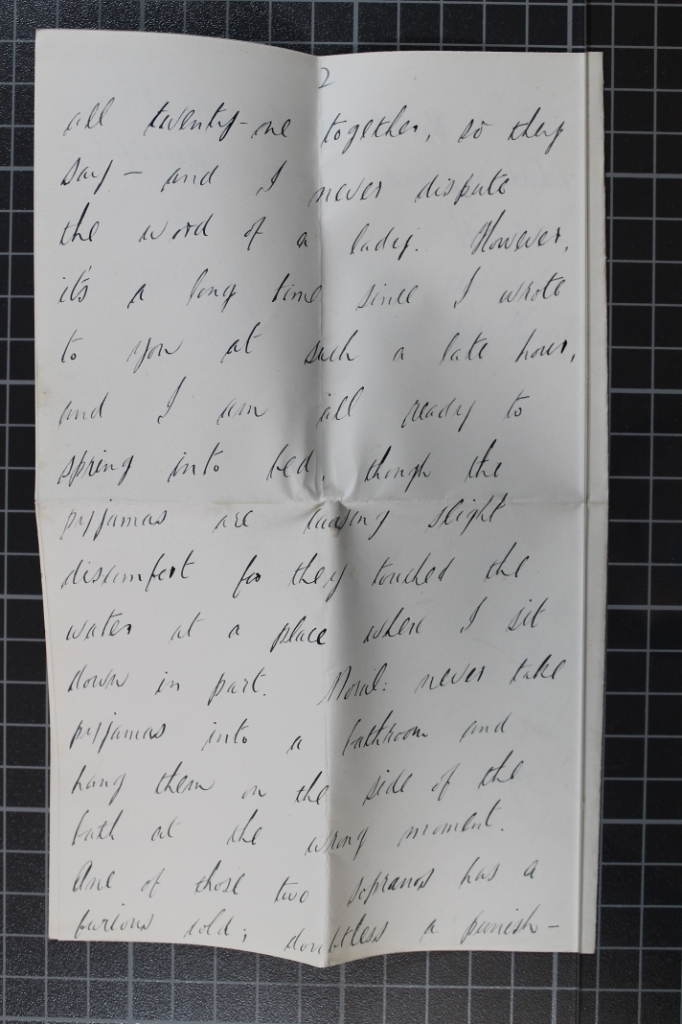 2
all twenty-one together, so they
say - and I never dispute
the word of a lady. However,
it's a long time since I wrote
to you at such a late hour,
and I am all ready to
spring into bed, though the
pyjamas are causing slight
discomfort for they touched the
water at a place where I sit
down in part. Moral: never take
pyjamas into a bathroom and
hang them on the side of the
bath at the wrong moment.
One of those two sopranos has a
furious cold; doubtless a punish-